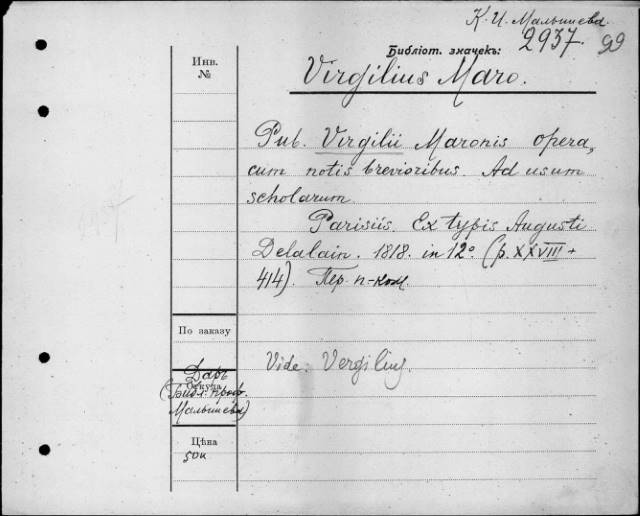 К. И. Малышева.
Библіот. значекъ: 2937. 99
Инв.
№
Virgilius Maro.
Pub. Virgilii Maronis opera,
cum notis brevioribus. Ad usum
scholarum.
Parisiis. Ex typis Augusti
Delalain. 1818. in 12º (p. XXVIII +
414). Пер. п-кож.
По заказу
Vide: Vergilius
Даръ
Откуда
(Библ. проф.
Малышева)
Цѣна
50к